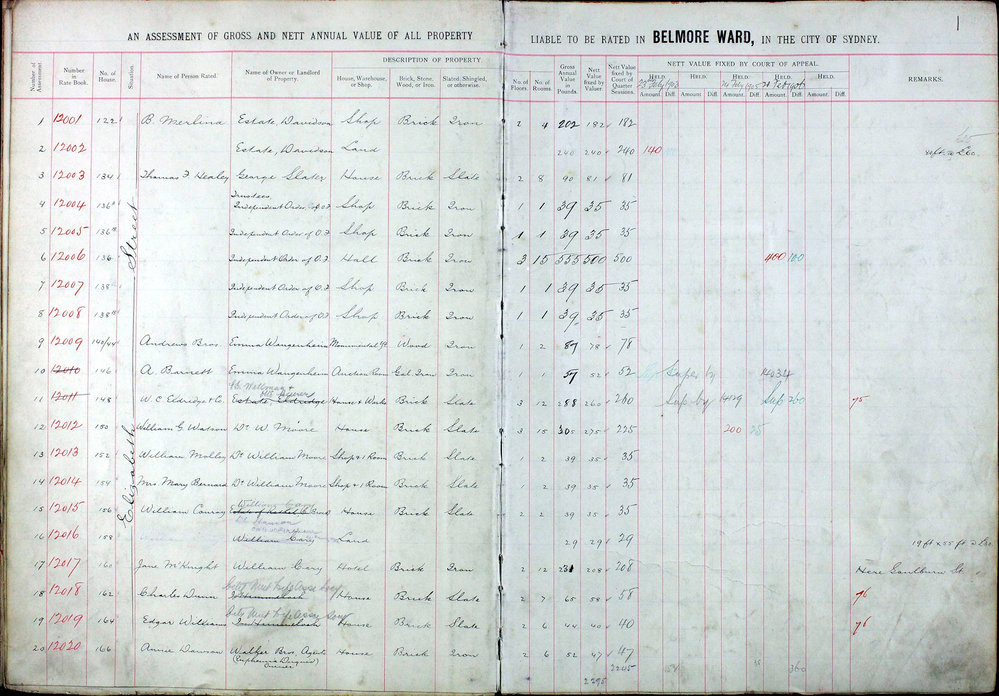 1
AN ASSESSMENT OF GROSS AND NETT ANNUAL VALUE OF ALL PROPERTY LIABLE TO BE RATED IN BELMORE WARD, IN THE CITY OF SYDNEY.
DESCRIPTION OF PROPERTY NETT VALUE FIXED BY COURT OF APPEAL.
Number of Assessment Number in Rate Book. No. of House. Situation Name of Person Rated. Name of Owner or Landlord of Property. House, Warehouse, or Shop. Brick, Stone, Wood, or Iron. Slated, Shingled, or otherwise. No. of Floors. No. of Rooms Gross Annual Value in Pounds. Nett Value fixed by Valuer Nett Value fixed by Court of Quarter Sessions. HELD. HELD. HELD. HELD. HELD. REMARKS.
Amount. Diff. Amount. Diff. Amount. Diff. Amount. Diff. Amount. Diff.
Elizabeth Street
1 12001 122 B. Merlina Estate, Davidson Shop Brick Iron 2 4 202 182 182
2 12002 Estate, Davidson Land 240 240 240 140
3 12003 134 Thomas F Healey George Slater House Brick Slate 2 8 90 81 81
Trustees
4 12004 136 Independent Order of O.F Shop Brick Iron 1 1 39 35 35
5 12005 136 Independent Order of O.F Shop Brick Iron 1 1 39 35 35
6 12006 136 Independent Order of O.F Hall Brick Iron 3 15 555 500 500 400 100
7 12007 138 Independent Order of O.F Shop Brick Iron 1 1 39 35 35
8 12008 138 Independent Order of O.F Shop Brick Iron 1 1 39 35 35
9 12009 140/44 Andrews Bros. Emma Wangenheim Monumental Yd Wood Iron 1 2 87 78 78
10 12010 146 A Barnett Emma Wangenheim Auction Room Gal. Iron Iron 1 1 57 52 52 Super by 14034
11 12011 148 W. C. Eldridge & Co. Estate, Eldridge House & Works Brick Slate 3 12 288 260 260 Sup by 14129 Sup 260 75
12 12012 150 William G Watson Dr. W. Moore House Brick Slate 3 15 305 275 225 200 25
13 12013 152 William Molloy Dr. William Moore Shop & 1 Room Brick Slate 1 2 39 35 35
14 12014 154 Mrs. Mary Bernard Dr. William Moore Shop & 1 Room Brick Slate 1 2 39 35 35
15 12015 156 William Conroy House Brick Slate 2 2 39 35 35
16 12016 158 William Cary Land 29 29 29 19 ft x 55 ft
17 12017 160 Jane McKnight William Cary Hotel Brick Iron 2 12 231 208 208 Here Goulburn St
18 12018 162 Charles Dunn House Brick Slate 2 7 65 58 58 76
19 12019 164 Edgar Williams House Brick Slate 2 6 44 40 40 76
20 12020 166 Annie Dawson Walker Bros. Agents House Brick Iron 2 6 52 47 47
Owner
2245 15 360
2295